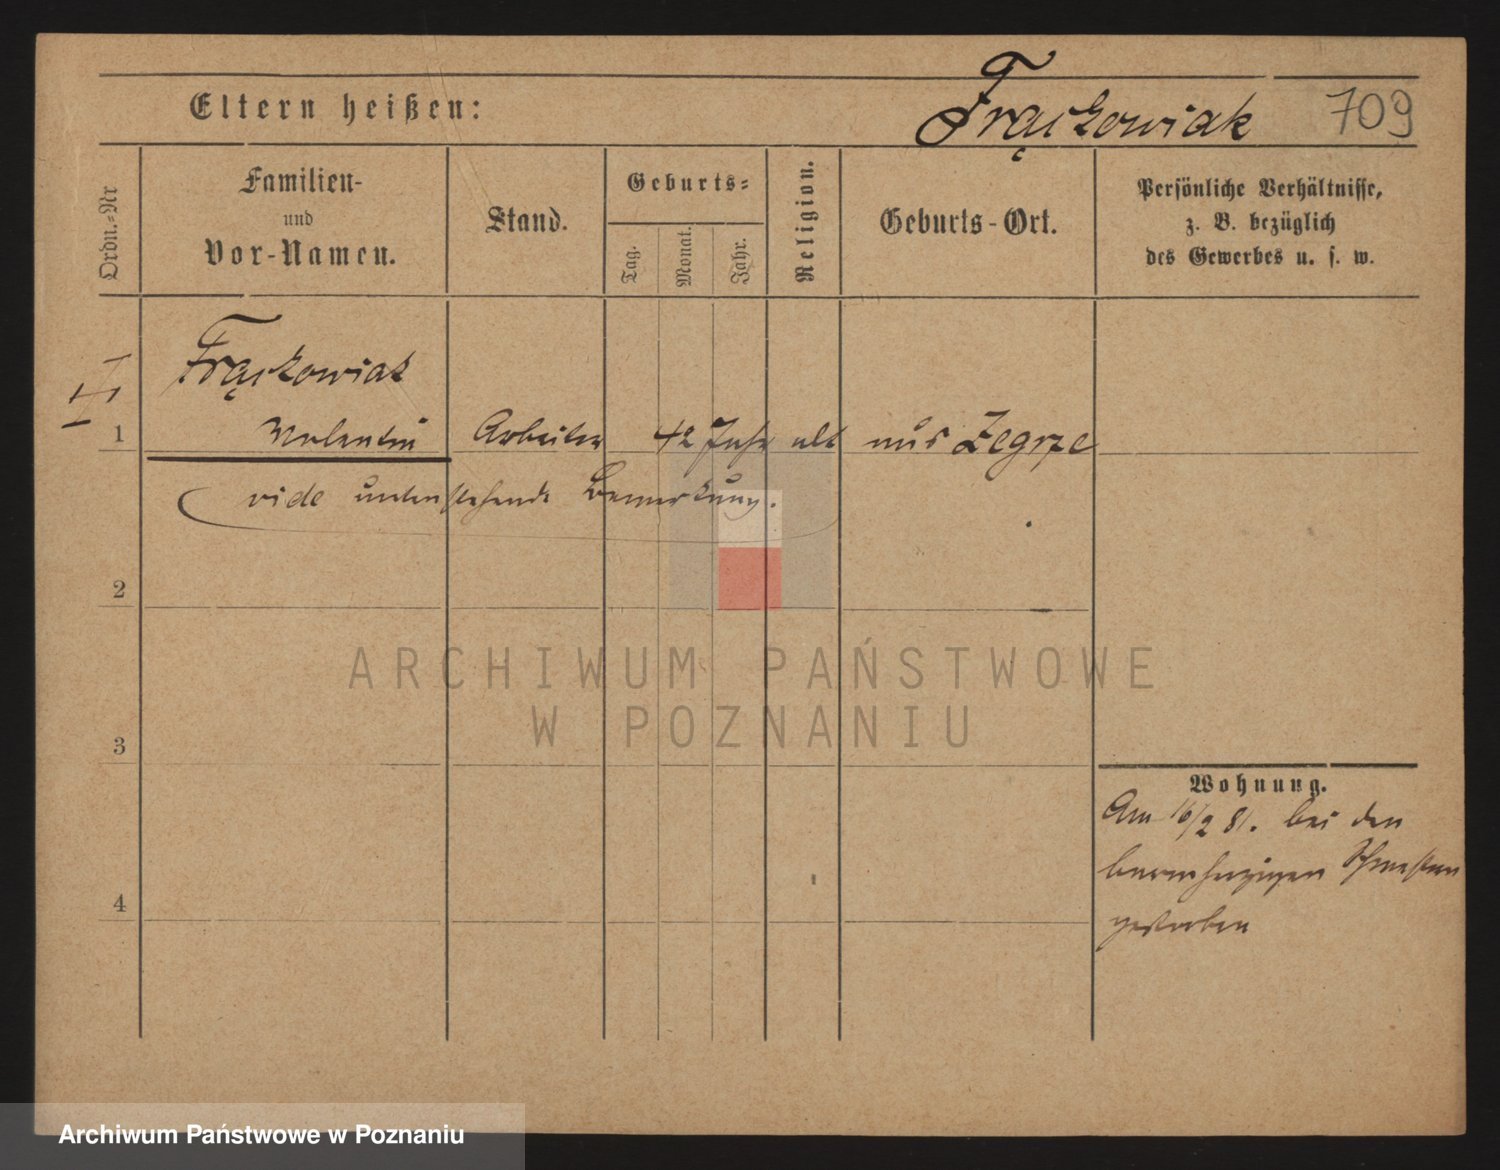 Eltern heißen:
Frąckowiak 709
Ordn.-Nr
Familien-
und
Vor-Namen.
Stand.
Geburts-
Tag.
Monat.
Jahr.
Religion.
Geburts-Ort.
Persönliche Verhältnisse,
z. B. bezüglich
des Gewerbes u. s. w.
Frąckowiak
1 Valentin Arbeiter 42 Jahr alt aus Zegrze
vide untenstehende Bemerkung.
2
ARCHIWUM PAŃSTWOWE
W POZNANIU
3
Wohnung.
Am 16/2 81. bei den
barmherzigen Schwestern
4
gestorben
Archiwum Państwowe w Poznaniu